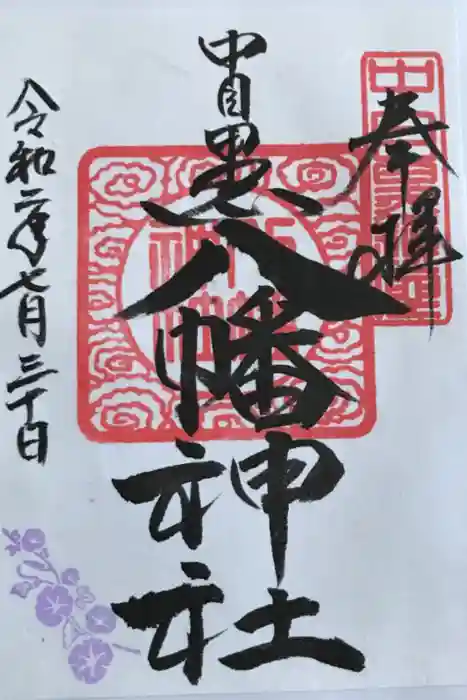 奉拝
中目黒八幡神社
令和二年七月三十日